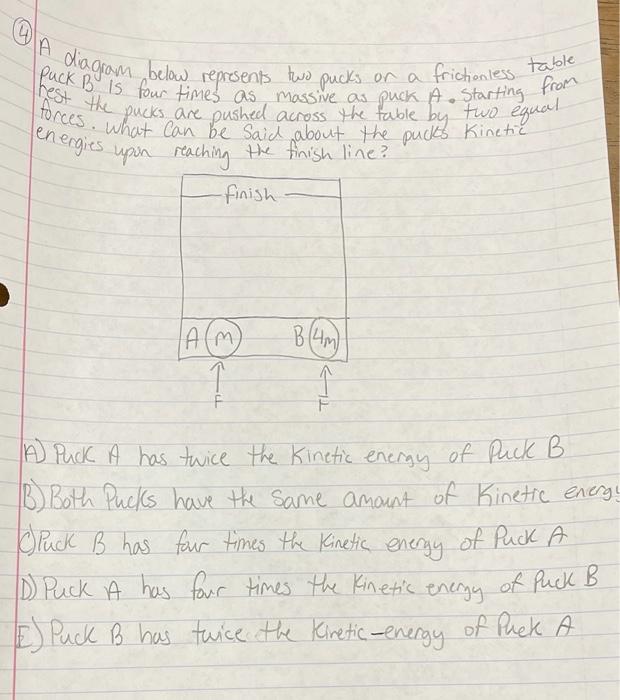 4
A diagram below represents two pucks on a frictionless table
Puck B is four times as massive as puck A. Starting from
rest the pucks are pushed across the table by two equal
forces. What can be said about the pucks kinetic
energies upon reaching the finish line?
finish
A m B 4m
F F
A) Puck A has twice the kinetic energy of Puck B
B) Both Pucks have the same amount of kinetic energy
C) Puck B has four times the kinetic energy of Puck A
D) Puck A has four times the kinetic energy of Puck B
E) Puck B has twice the kinetic-energy of Puck A